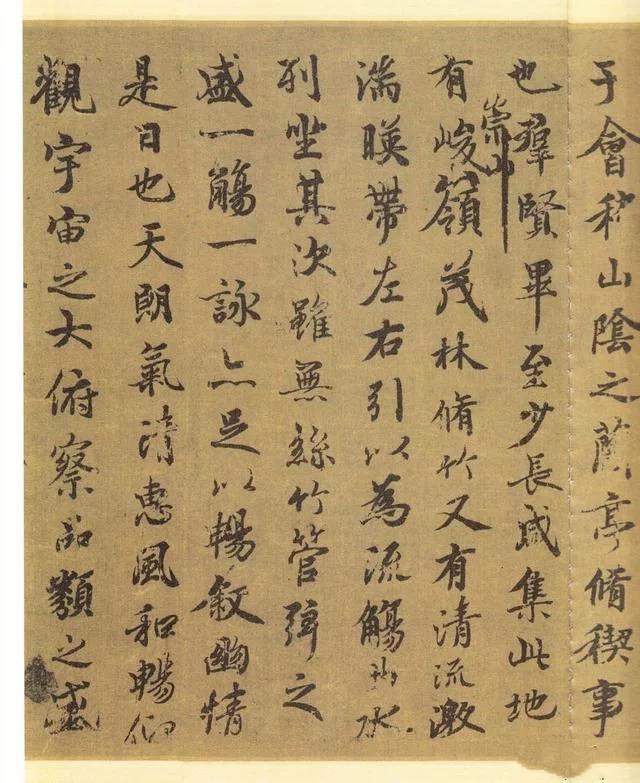 于會稽山陰之蘭亭脩稧事
也羣賢畢至少長咸集此地
有崇山峻嶺茂林脩竹又有清流激
湍暎帶左右引以為流觴曲水
列坐其次雖無絲竹管弦之
盛一觴一詠亦足以暢敘幽情
是日也天朗氣清惠風和暢仰
觀宇宙之大俯察品類之盛